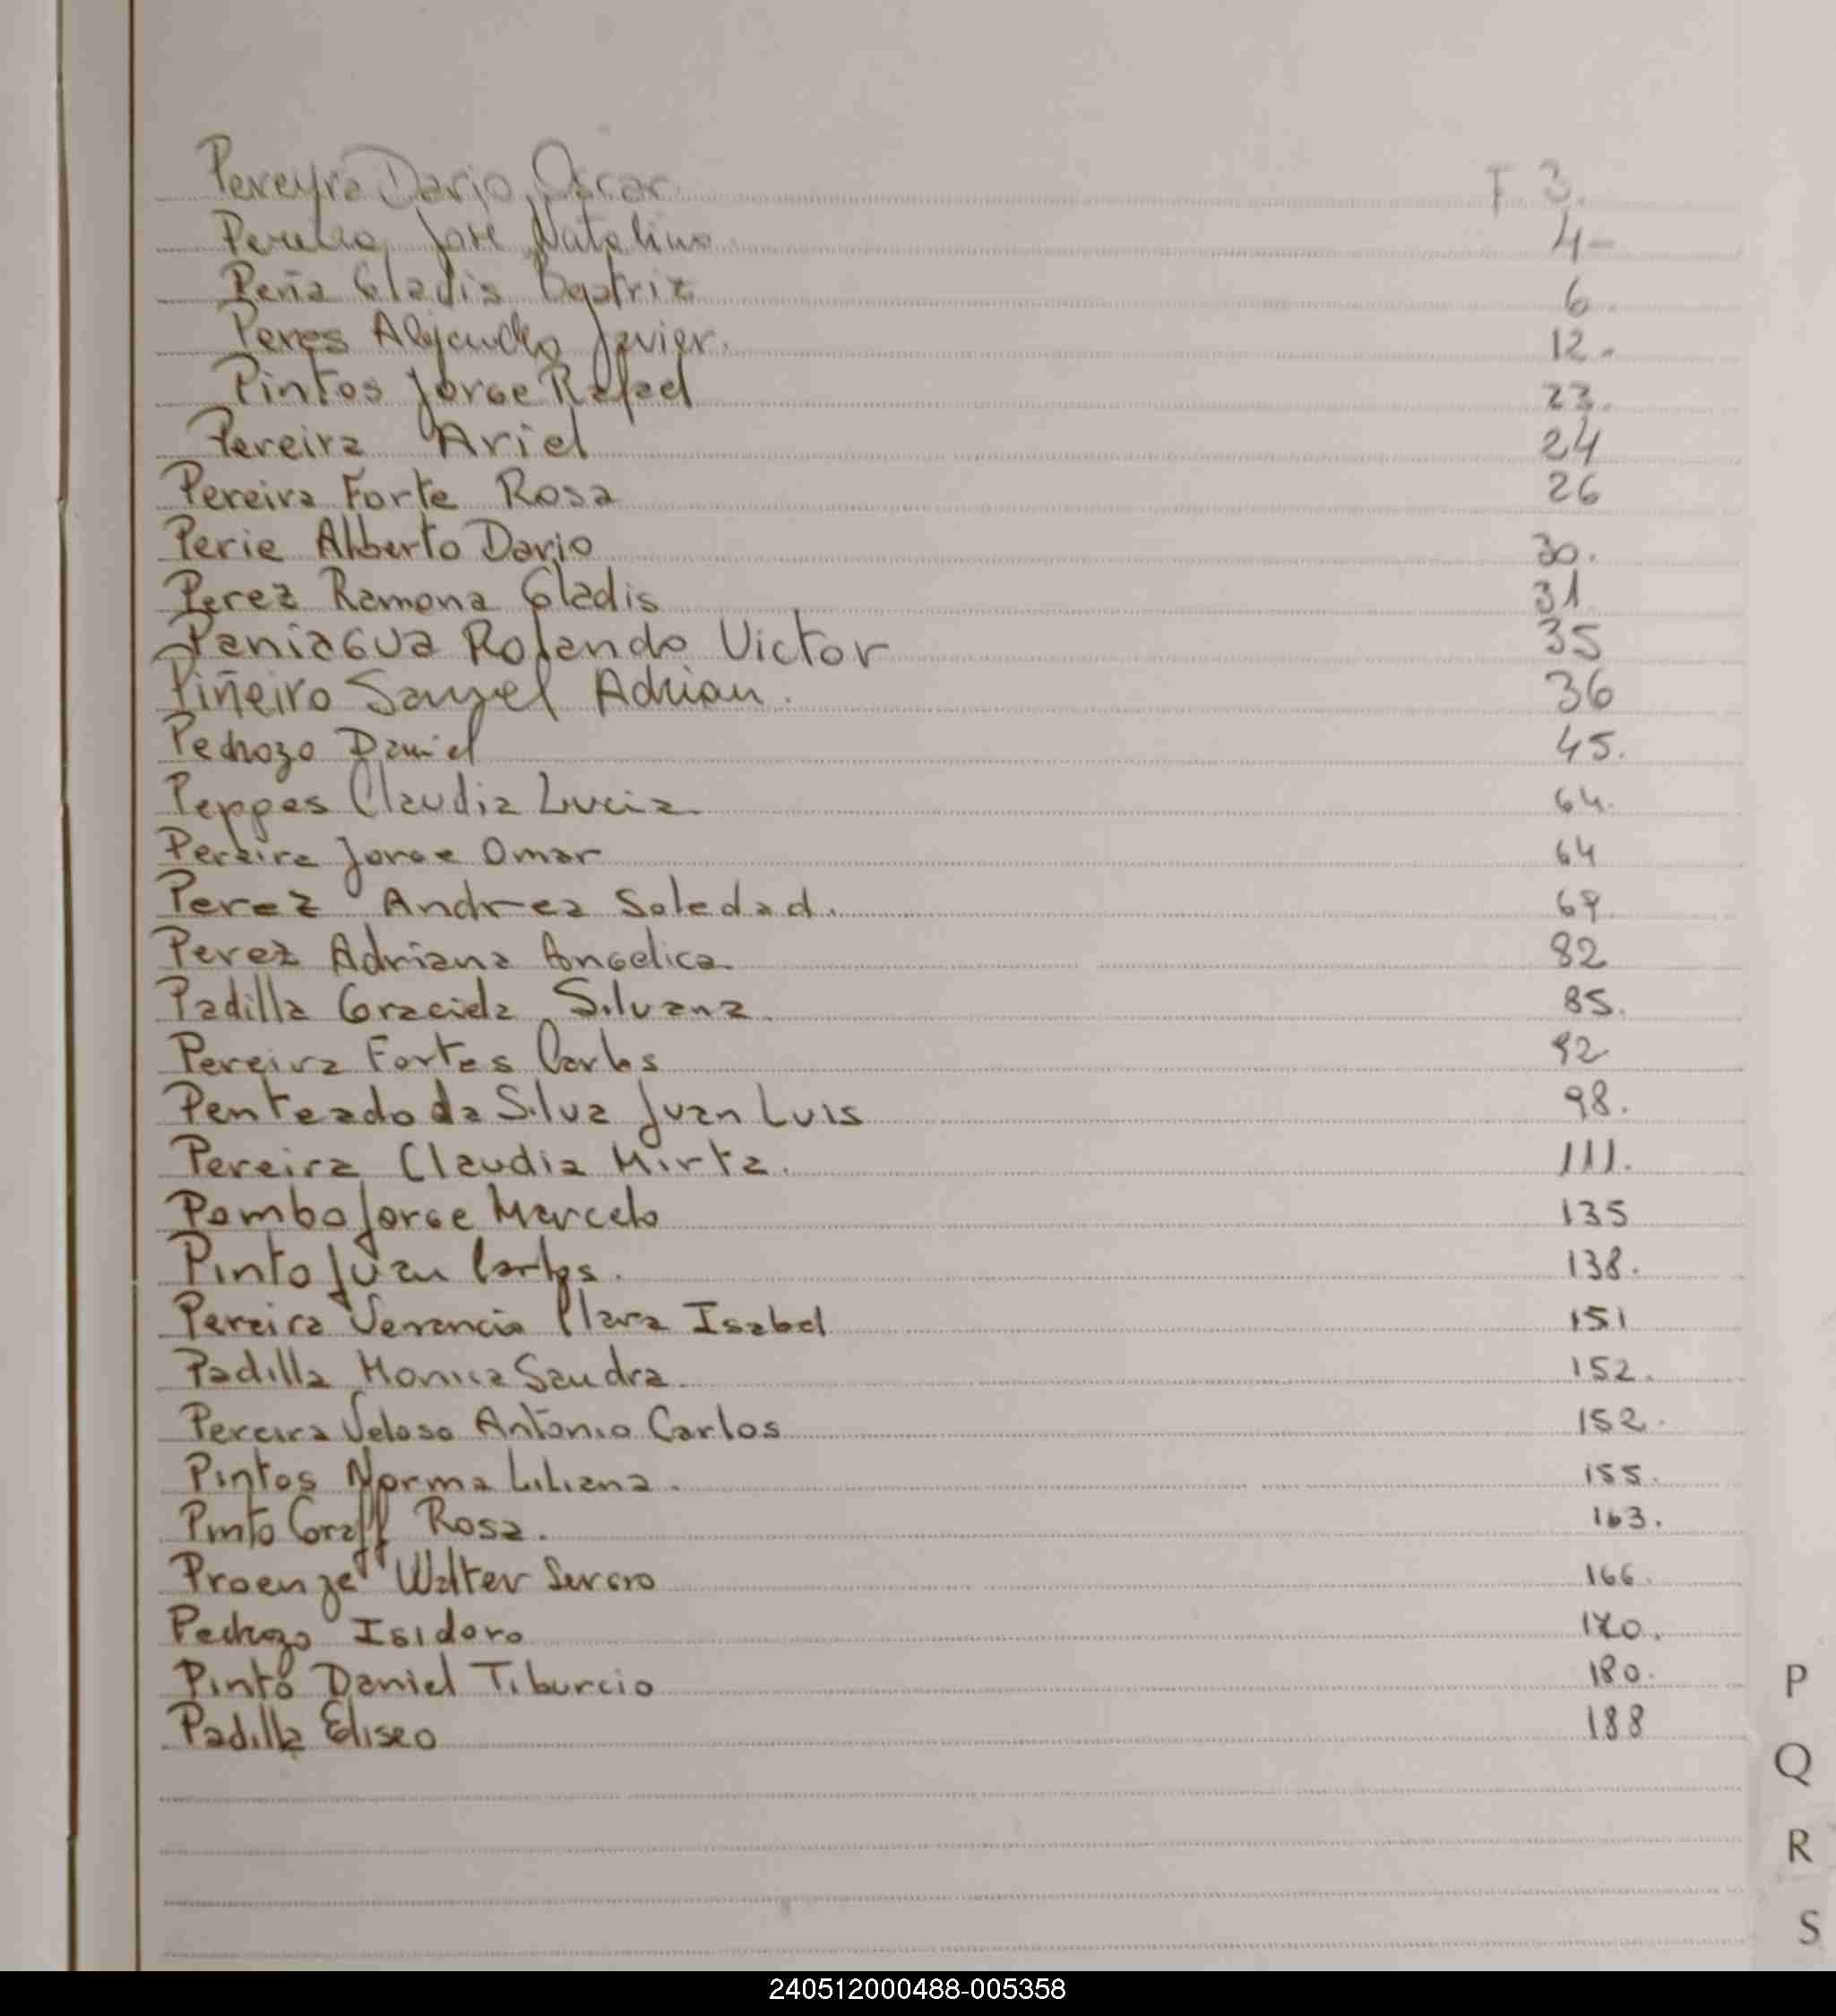 Pereyra Dario Oscar. F. 3.
José Natalino 4-
Peña Gladis Beatriz 6
Peres Alejandro Javier. 12.
Pintos Jorge Rafael 23.
Pereira Ariel 24
Pereira Forte Rosa 26
Perie Alberto Dario 30.
Perez Ramona Gladis 31
Paniagua Rolando Victor 35
Piñeiro Samuel Adrian. 36
Pedrozo Daniel 45.
Peppes Claudia Lucia 64.
Pereira Jorge Omar 64
Perez Andrea Soledad. 69.
Perez Adriana Angelica 82
Padilla Graciela Silvana. 85.
Pereira Fortes Carlos 92
Penteado da Silva Juan Luis 98.
Pereira Claudia Mirta. 111.
Pombo Jorge Marcelo 135
Pinto Juan Carlos. 138.
Pereira Venancia Clara Isabel 151
Padilla Monica Sandra. 152.
Pereira Veloso Antonio Carlos 152.
Pintos Norma Liliana. 155.
Pinto Graff Rosa. 163.
Proenze Walter Sergio 166.
Pedrozo Isidoro 170.
Pinto Daniel Tiburcio 180.
Padilla Eliseo 188
P
Q
R
S
240512000488-005358